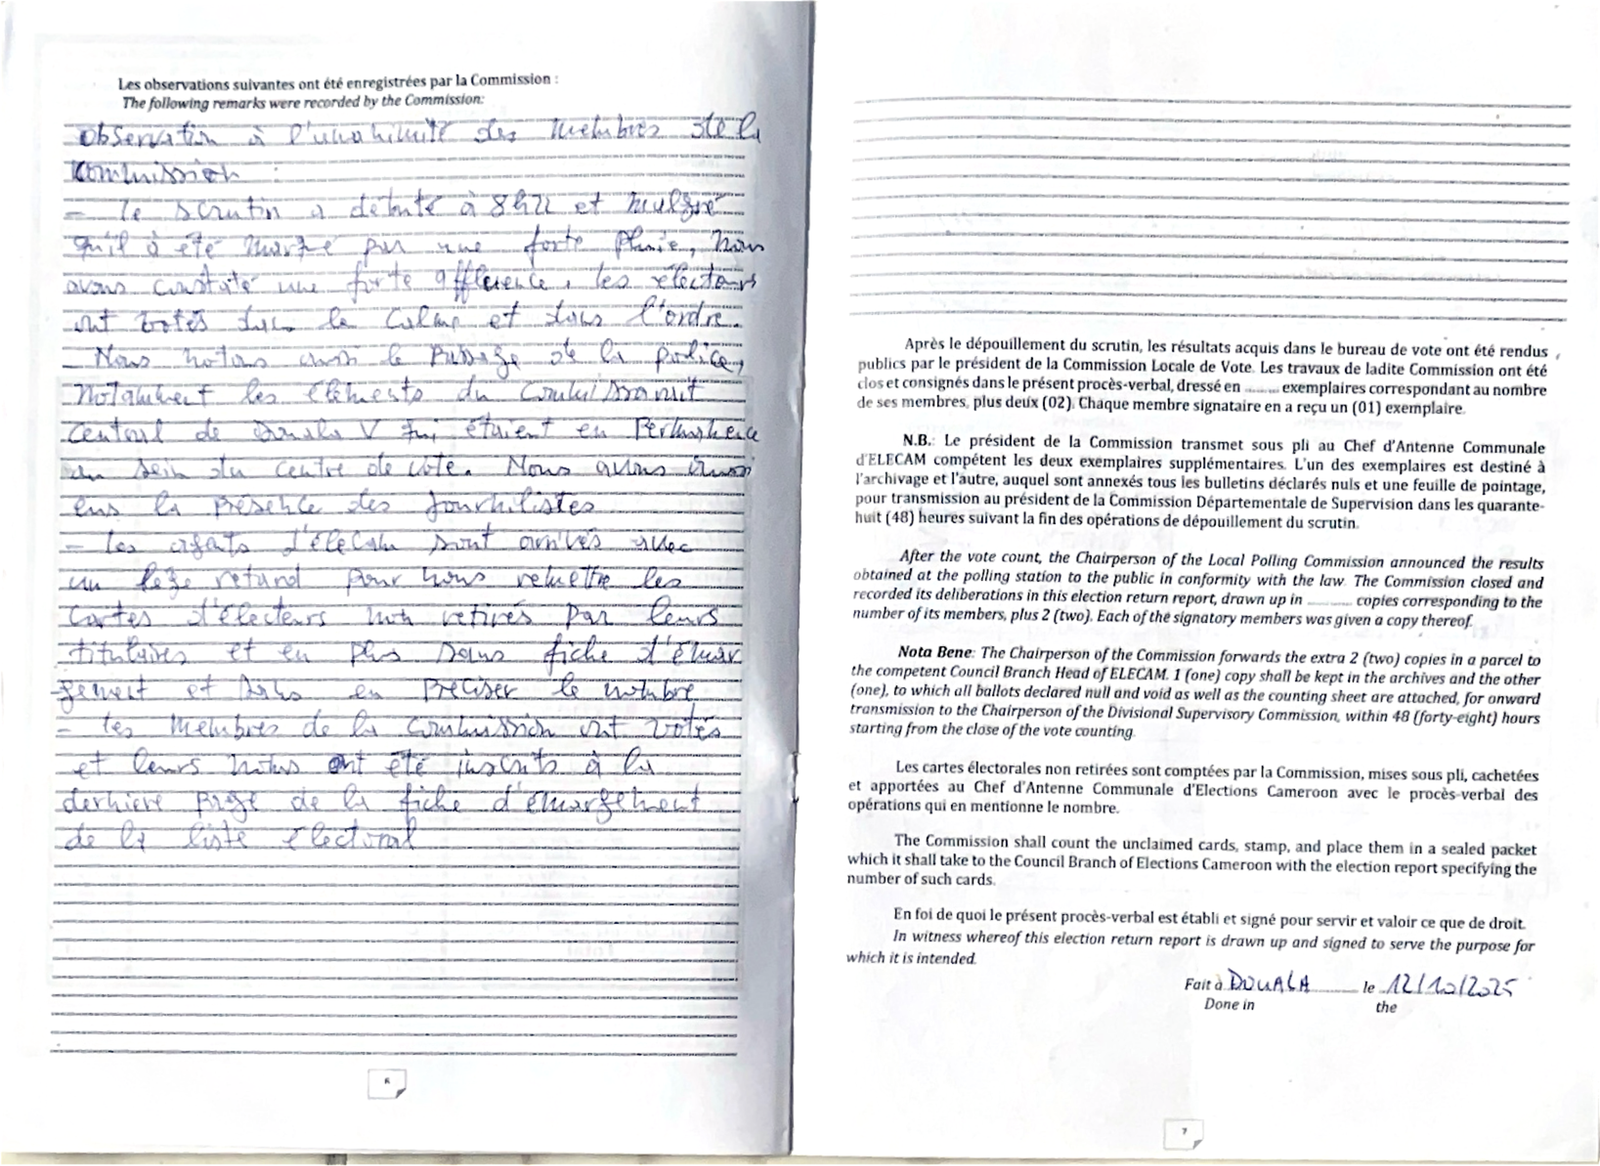 Les observations suivantes ont été enregistrées par la Commission :
The following remarks were recorded by the Commission:
Observation à l'unanimité des membres de la
Commission :
- Le scrutin a débuté à 8h22 et malgré
qu'il à été marqué par une forte pluie, nous
avons constaté une forte afflence, les électeurs
ont votés dans le calme et dans l'ordre.
- Nous notons aussi le passage de la police,
notamment les éléments du commissariat
central de Douala V qui étaient en permanence
au sein du centre de vote. Nous avons aussi
eus la présence des journalistes
- Les agents d'élecam sont arrivés avec
un lége retard pour nous remettre les
cartes d'électeurs non retirés par leurs
titulaires et en plus sans fiche d'émar
gement et sans en préciser le nombre
- Les membres de la commission ont votés
et leurs noms ont été inscrits à la
dernière page de la fiche d'émargement
de la liste électoral
6
Après le dépouillement du scrutin, les résultats acquis dans le bureau de vote ont été rendus
publics par le président de la Commission Locale de Vote. Les travaux de ladite Commission ont été
clos et consignés dans le présent procès-verbal, dressé en ......... exemplaires correspondant au nombre
de ses membres, plus deux (02). Chaque membre signataire en a reçu un (01) exemplaire.
N.B.: Le président de la Commission transmet sous pli au Chef d'Antenne Communale
d'ELECAM compétent les deux exemplaires supplémentaires. L'un des exemplaires est destiné à
l'archivage et l'autre, auquel sont annexés tous les bulletins déclarés nuls et une feuille de pointage,
pour transmission au président de la Commission Départementale de Supervision dans les quarante-
huit (48) heures suivant la fin des opérations de dépouillement du scrutin.
After the vote count, the Chairperson of the Local Polling Commission announced the results
obtained at the polling station to the public in conformity with the law. The Commission closed and
recorded its deliberations in this election return report, drawn up in ............ copies corresponding to the
number of its members, plus 2 (two). Each of the signatory members was given a copy thereof.
Nota Bene: The Chairperson of the Commission forwards the extra 2 (two) copies in a parcel to
the competent Council Branch Head of ELECAM. 1 (one) copy shall be kept in the archives and the other
(one), to which all ballots declared null and void as well as the counting sheet are attached, for onward
transmission to the Chairperson of the Divisional Supervisory Commission, within 48 (forty-eight) hours
starting from the close of the vote counting.
Les cartes électorales non retirées sont comptées par la Commission, mises sous pli, cachetées
et apportées au Chef d'Antenne Communale d'Elections Cameroon avec le procès-verbal des
opérations qui en mentionne le nombre.
The Commission shall count the unclaimed cards, stamp, and place them in a sealed packet
which it shall take to the Council Branch of Elections Cameroon with the election report specifying the
number of such cards.
En foi de quoi le présent procès-verbal est établi et signé pour servir et valoir ce que de droit.
In witness whereof this election return report is drawn up and signed to serve the purpose for
which it is intended.
Fait à DOUALA le 12/10/2025
Done in the
7